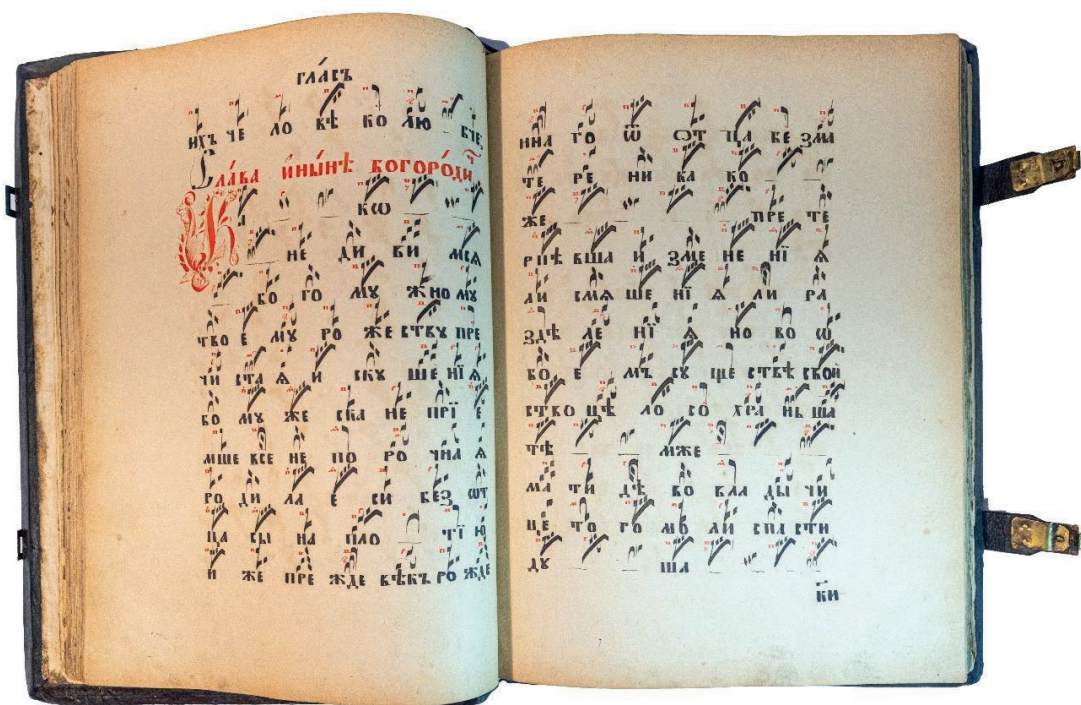 гла́съ
ихъ че ло вѣ ко лю бче,
Сла́ва и҆ны́нѣ богоро́ди
К а кѡ
не ди ви мся
бо го му жно му
тво е му ро же ству пре
чи ста ѧ и ску ше нїѧ
бо му же ска не прї е
мше все не по ро чна ѧ
ро ди ла е си без ѡт
ца сы на пло тї ю
и же пре жде вѣкъ ро жде
нна го ѿ ѻт ца бе зма
те ре ни ка ко
же пре те
рпѣ вша и зме не нї ѧ
ли смѧ ше нї ѧ ли ра
здѣ ле нї ѧ но ѻ бо ѡ
бо е мъ су ще ствѣ свой
ство цѣ ло со хра нь ша
тѣ мже
ма ти дѣ во вла ды чи
це то го мо ли спа сти
ду ша
ки